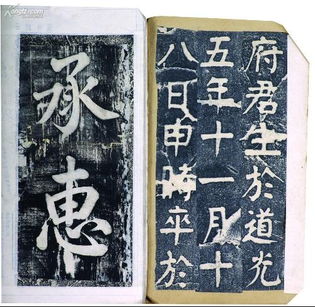 府君生於道光
五年十一月十
八日申時卒於
承惠